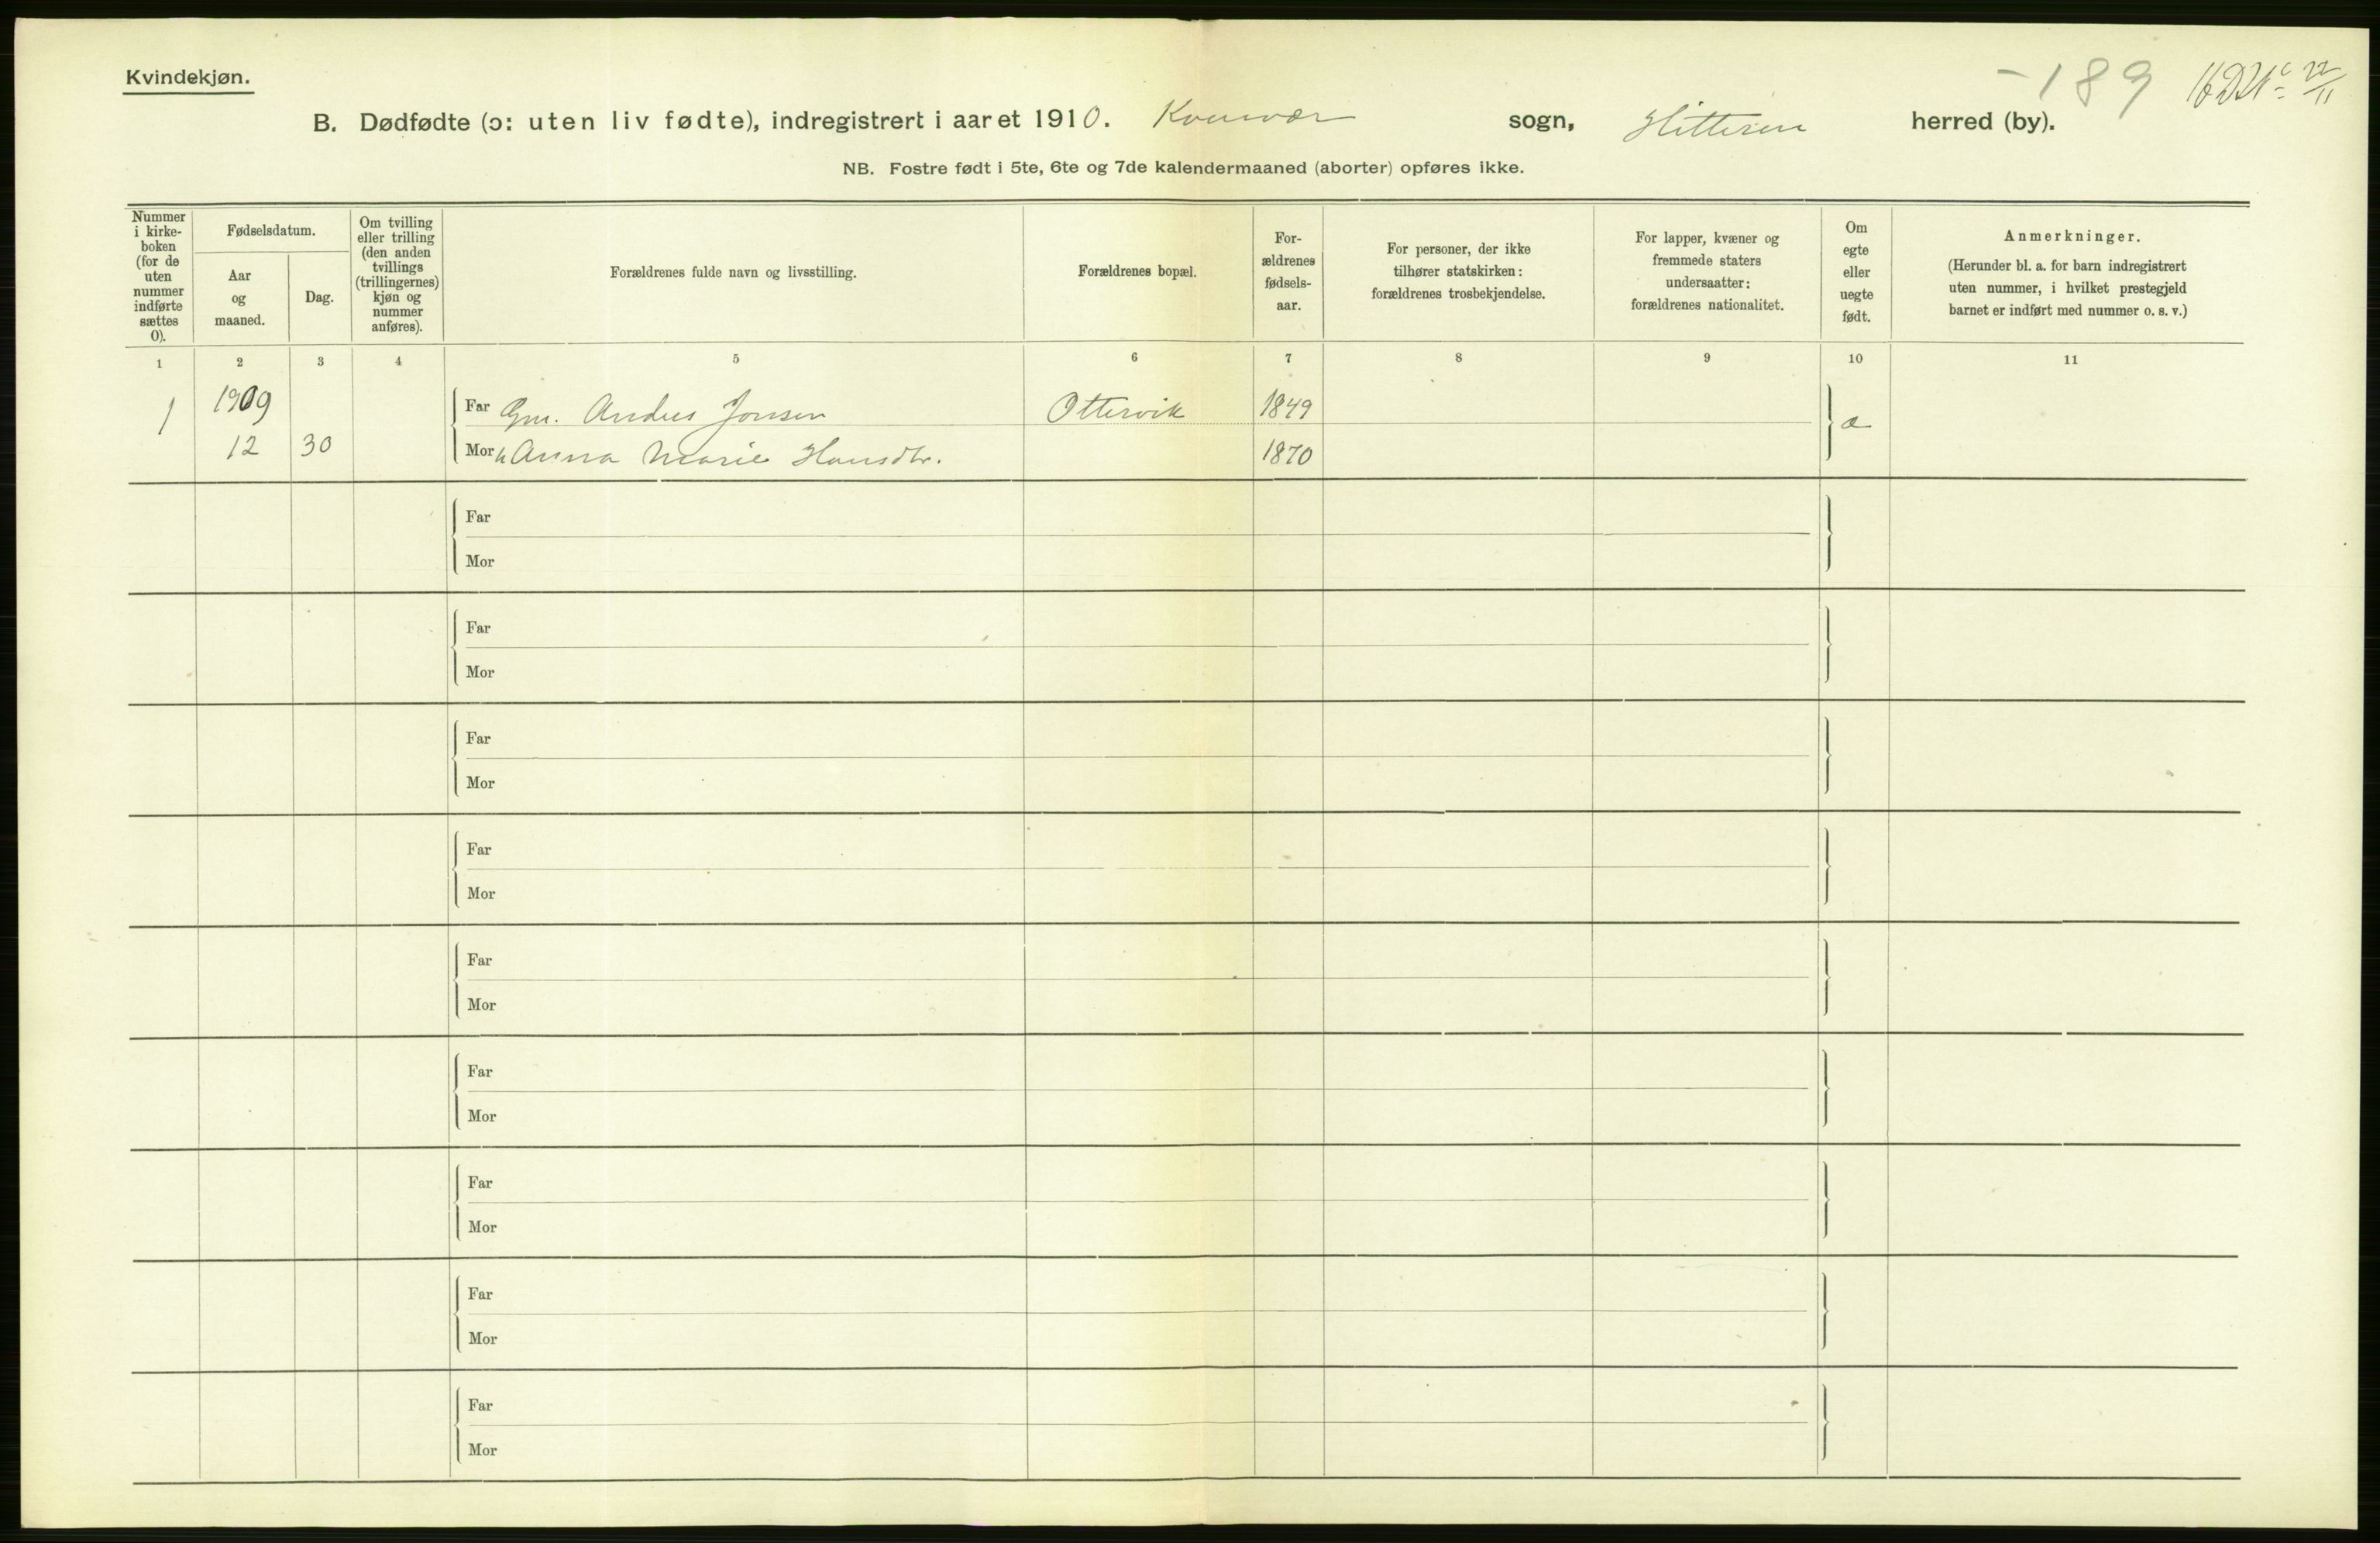 Kvindekjøn.
-189
22/11
B. Dødfødte (ɔ: uten liv fødte), indregistrert i aaret 1910. Kvenvær sogn, Hitteren herred (by).
NB. Fostre født i 5te, 6te og 7de kalendermaaned (aborter) opføres ikke.
Nummer
i kirke-
boken
(for de
uten
nummer
indførte
sættes
0).
Fødselsdatum.
Aar
og
maaned.
Dag.
Om tvilling
eller trilling
(den anden
tvillings
(trillingernes)
kjøn og
nummer
anføres).
Forældrenes fulde navn og livsstilling.
Forældrenes bopæl.
For-
ældrenes
fødsels-
aar.
For personer, der ikke
tilhører statskirken:
forældrenes trosbekjendelse.
For lapper, kvæner og
fremmede staters
undersaatter:
forældrenes nationalitet.
Om
egte
eller
uegte
født.
Anmerkninger.
(Herunder bl. a. for barn indregistrert
uten nummer, i hvilket prestegjeld
barnet er indført med nummer o. s. v.)
1 2 3 4 5 6 7 8 9 10 11
1 1909 Far Gm. Anders Jonsen Ottervik 1849 æ
12 30 Mor Anna Marie Hansdtr. 1870
Far
Mor
Far
Mor
Far
Mor
Far
Mor
Far
Mor
Far
Mor
Far
Mor
Far
Mor
Far
Mor